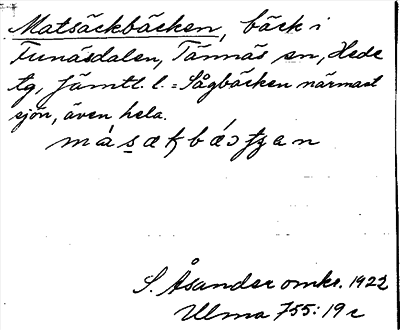 Matsäckbäcken, bäck i
Funäsdalen, Tännäs sn, Hede
tg, Jämtl. l. = Sågbäcken närmast
sjön, även hela.
S. Åsander omkr. 1922
Ulma 755:19c